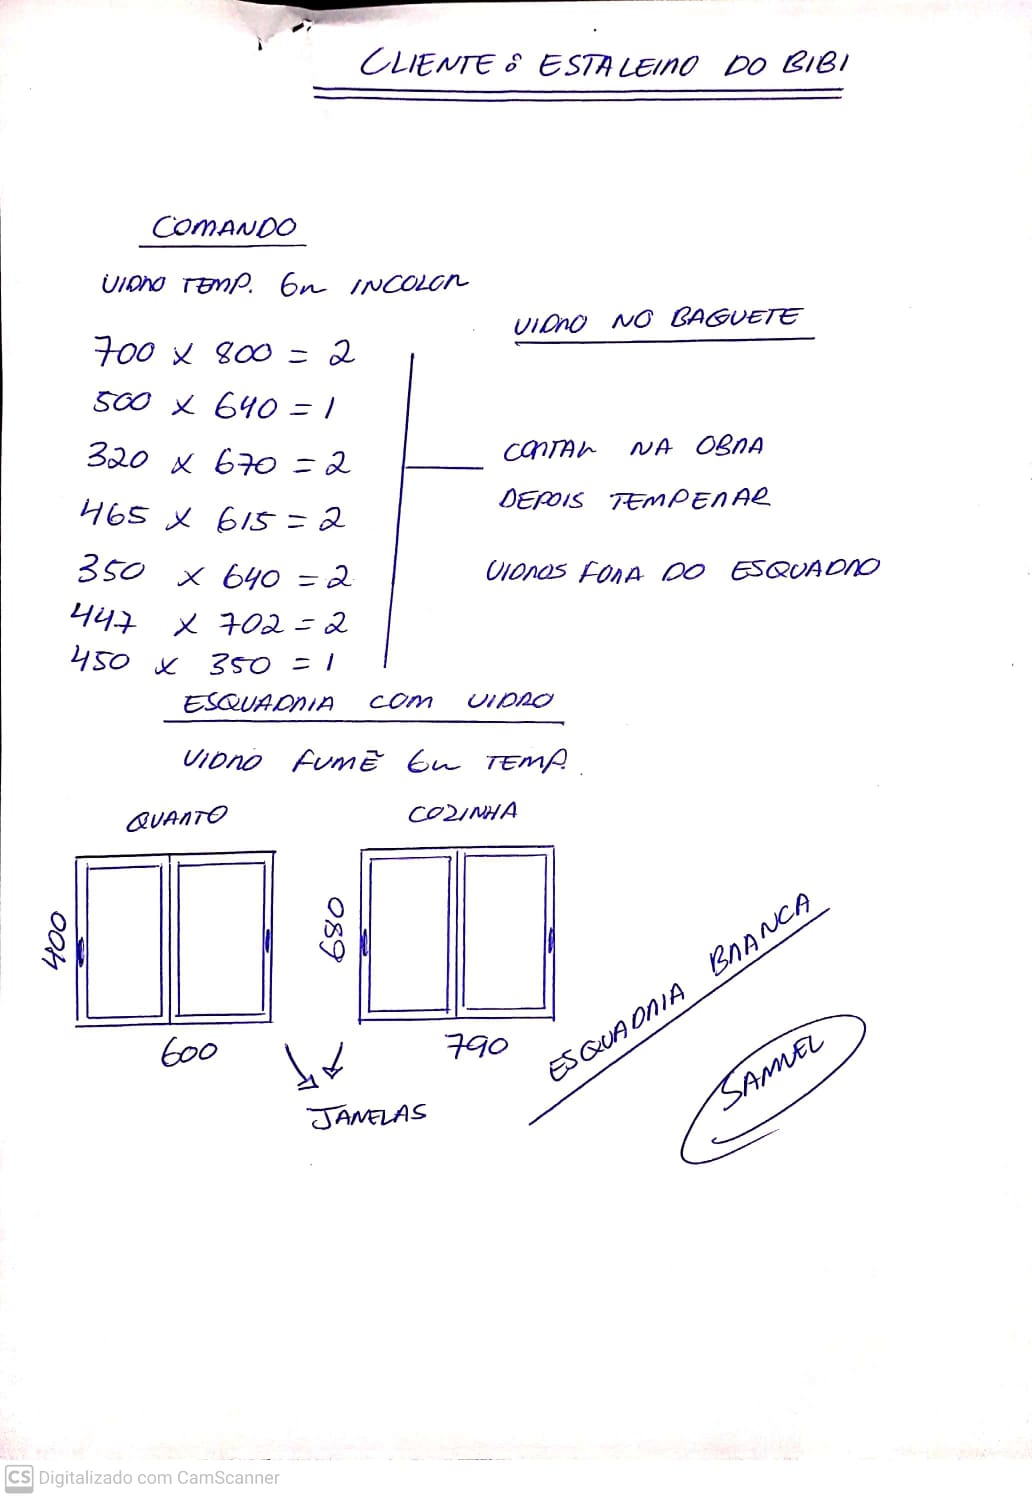 CLIENTE: ESTALEIRO DO BIBI
COMANDO
VIDRO TEMP. 6m INCOLOR
VIDRO NO BAGUETE
700 x 800 = 2
500 x 640 = 1
320 x 670 = 2
465 x 615 = 2
350 x 640 = 2
447 x 702 = 2
450 x 350 = 1
CORTAR NA OBRA
DEPOIS TEMPERAR
VIDROS FORA DO ESQUADRO
ESQUADRIA COM VIDRO
VIDRO FUMÊ 6m TEMP.
QUARTO
COZINHA
400
600
680
790
JANELAS
ESQUADRIA BRANCA
SAMUEL
CS Digitalizado com CamScanner